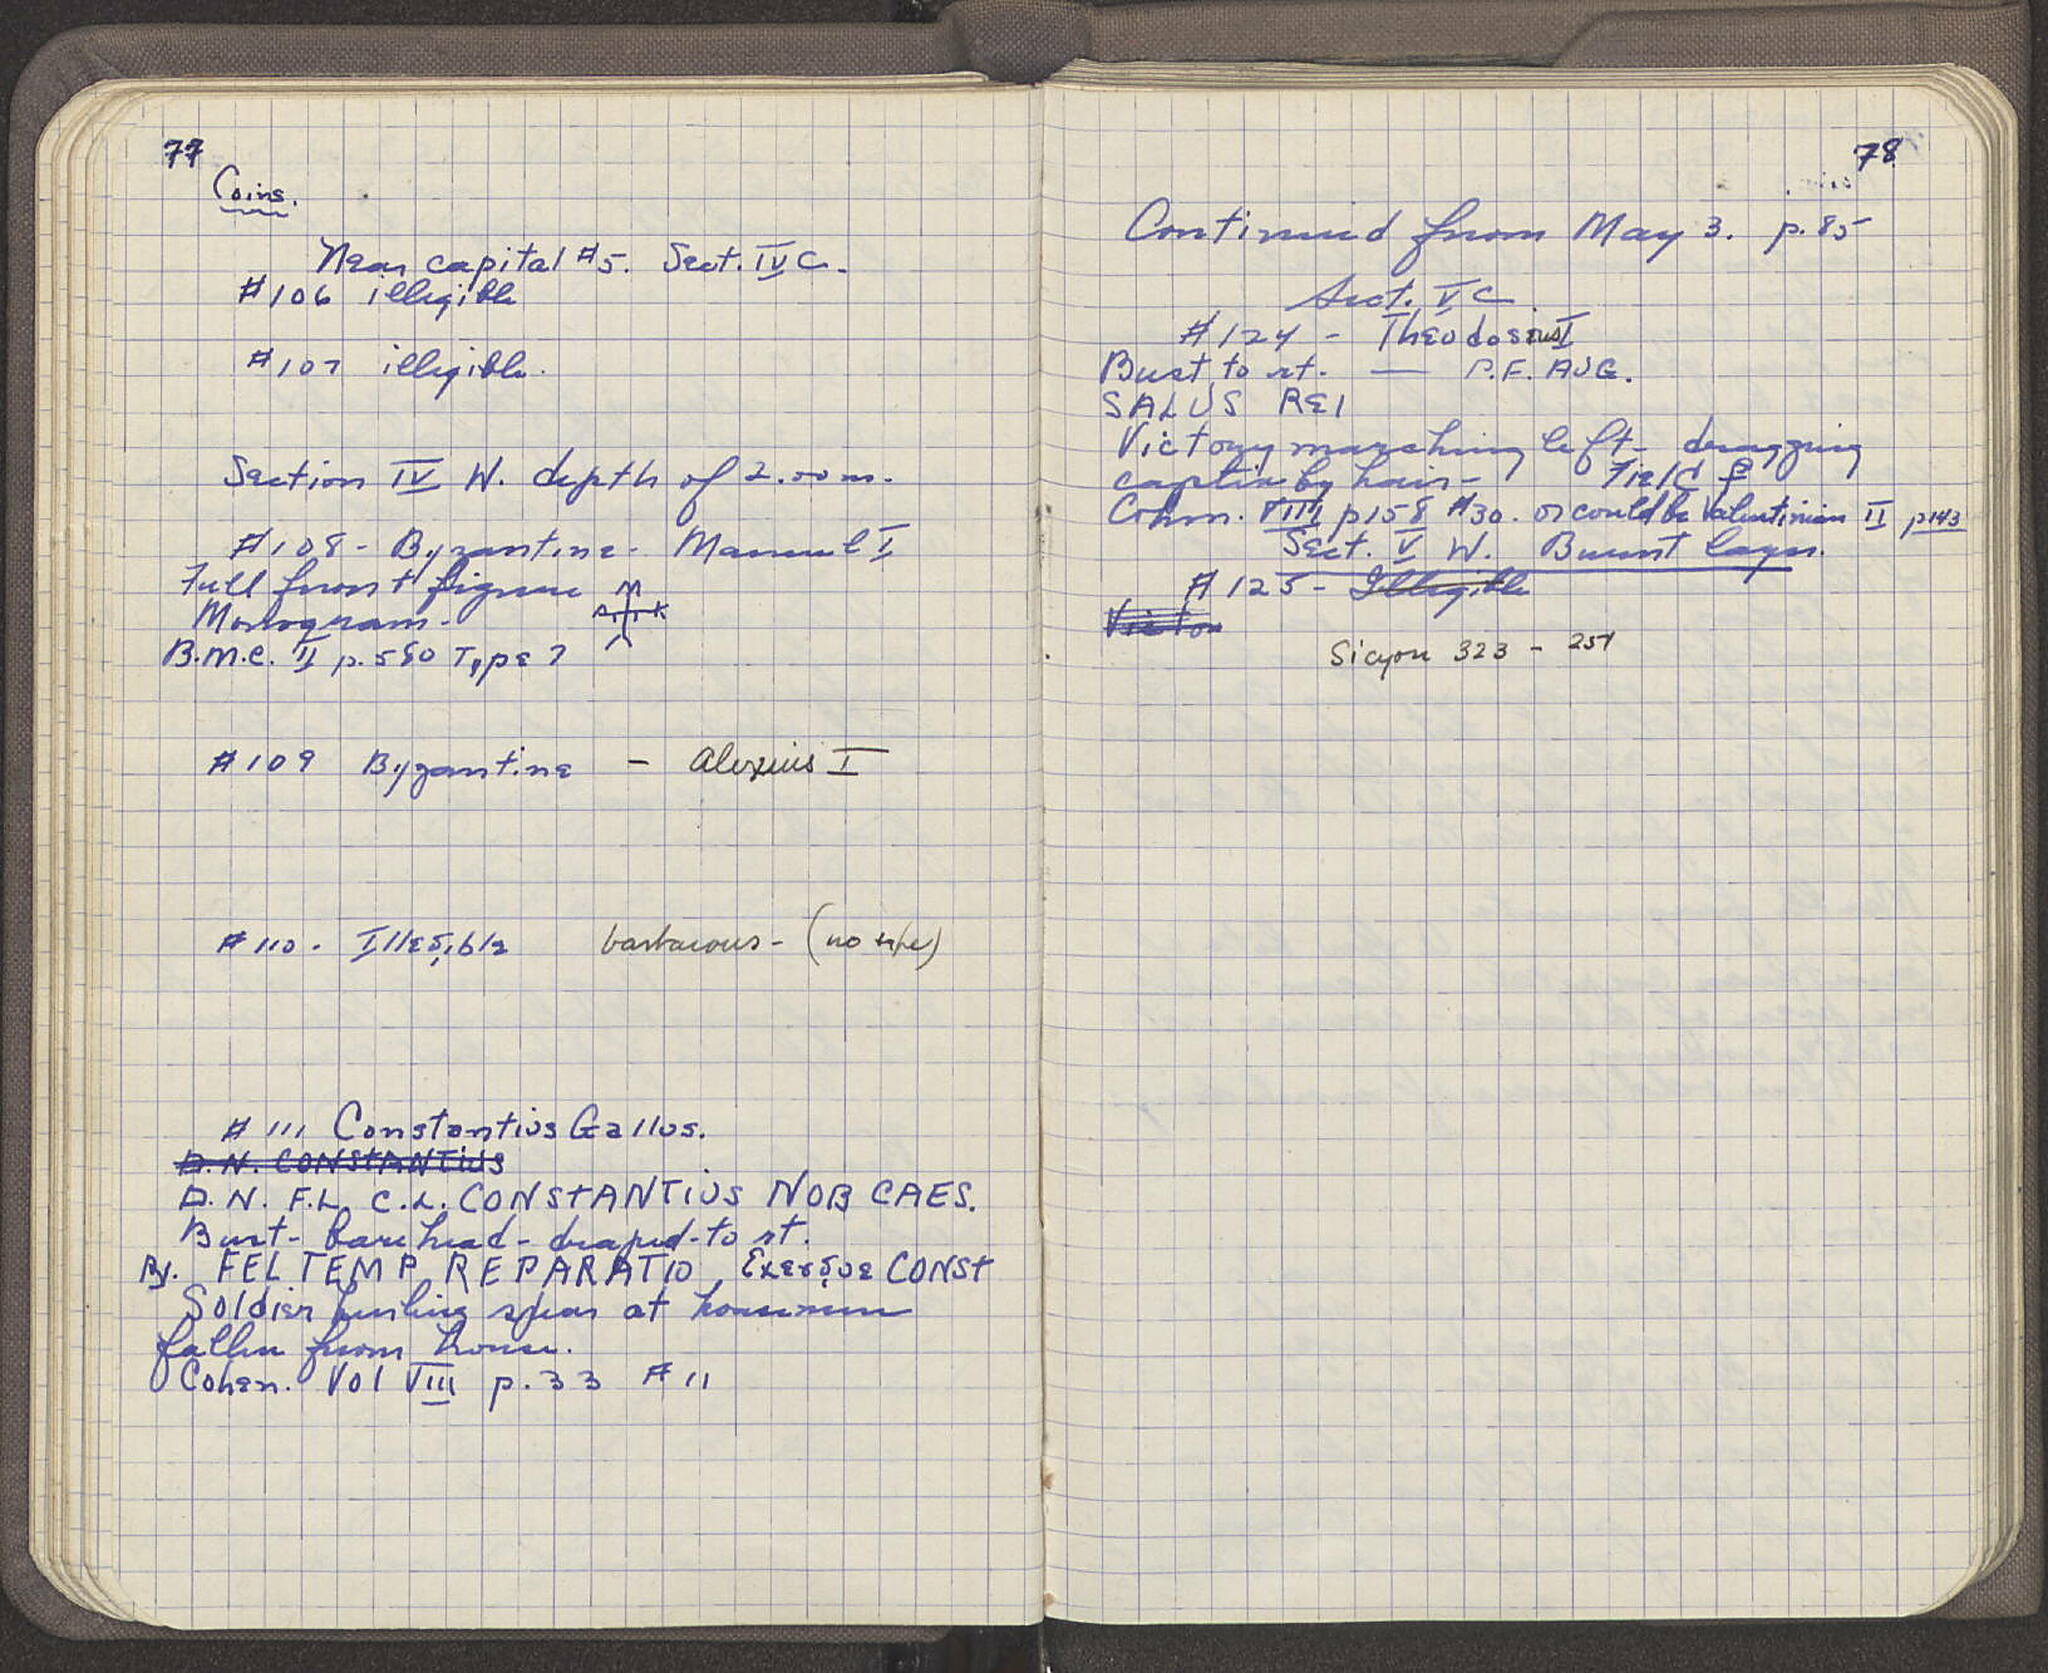 77
Coins.
Near capital #5. Sect. IV C.
#106 illegible
#107 illegible.
Section IV W. depth of 2.00 m.
#108 - Byzantine - Manuel I
Full front figure
Monogram.
B.M.C. II p. 580 Type 7
#109 Byzantine - Alexius I
#110. Illegible barbarous - (no
#111 Constantius Gallus.
D.N. CONSTANTIUS
D.N. F.L. C.L. CONSTANTIUS NOB CAES.
Bust - bare head - draped - to rt.
Rv. FEL TEMP REPARATIO Exergue CONST
Soldier hurling spear at horseman
fallen from horse.
Cohen. Vol VIII p. 33 #11
78
Continued from May 3. p. 85
Sect. V C
#124 - Theodosius I
Bust to rt. — P.F. AUG.
SALUS REI
Victory marching left - dragging
captive by hair - Field
Cohen. VIII p158 #30. or could be Valentinian II p143
Sect. V W. Burnt layer.
#125 - Illegible
Victor
Sicyon 323 - 251